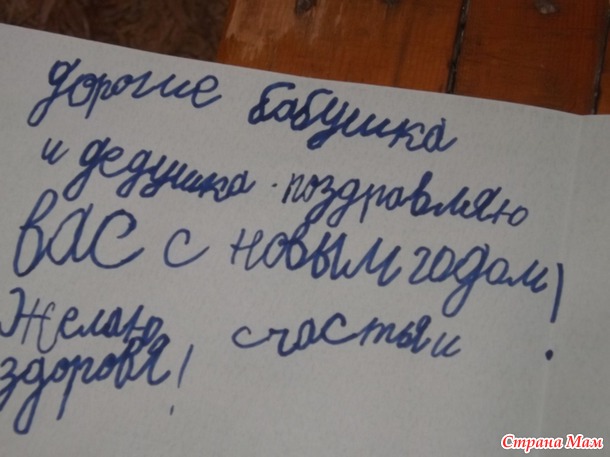 дорогие бабушка
и дедушка. поздравляю
вас с новым годом!
Желаю счастья и
здоровя!
Страна Мам